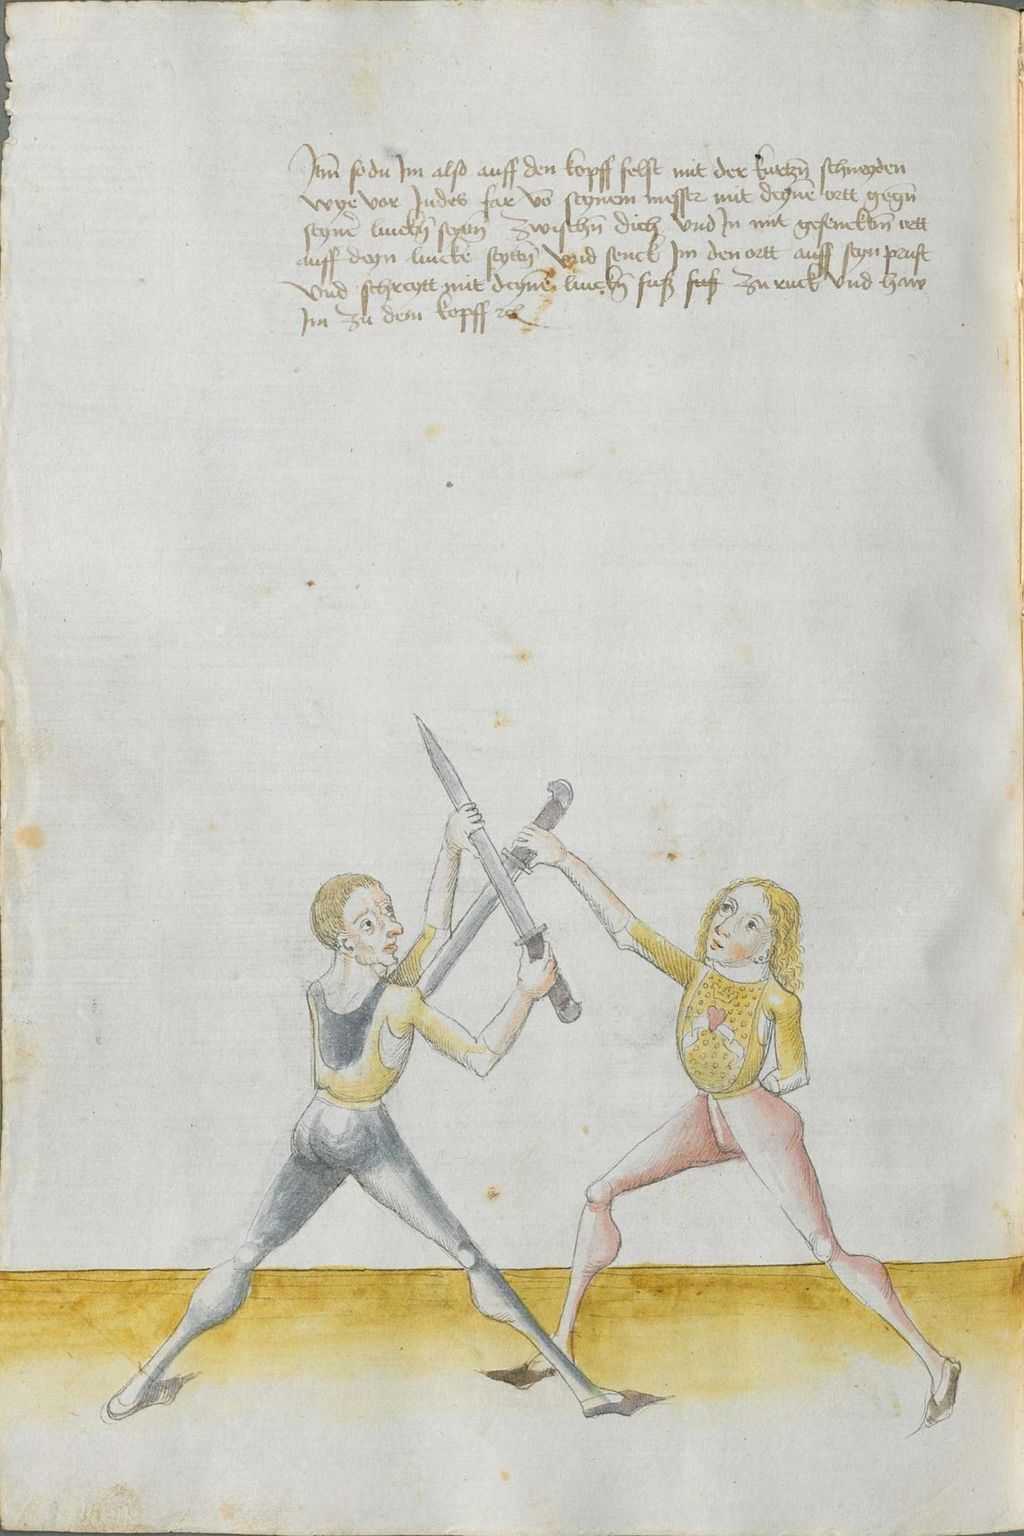 Itm̄ so du Im also auff den kopff felst mit der kurtzn̄ schneyden
wye vor Indes far vō seynem messer mit deynē ortt gegn̄
seynē linckn̄ seytn̄ zwischn̄ dich und In mit gesencktn̄ ortt
auff deyn lincke seyttn̄ und senck Im den ortt auff seyn prust
und schreytt mit deynē linckn̄ fuß zu ruck und haw
Im zu dem kopff